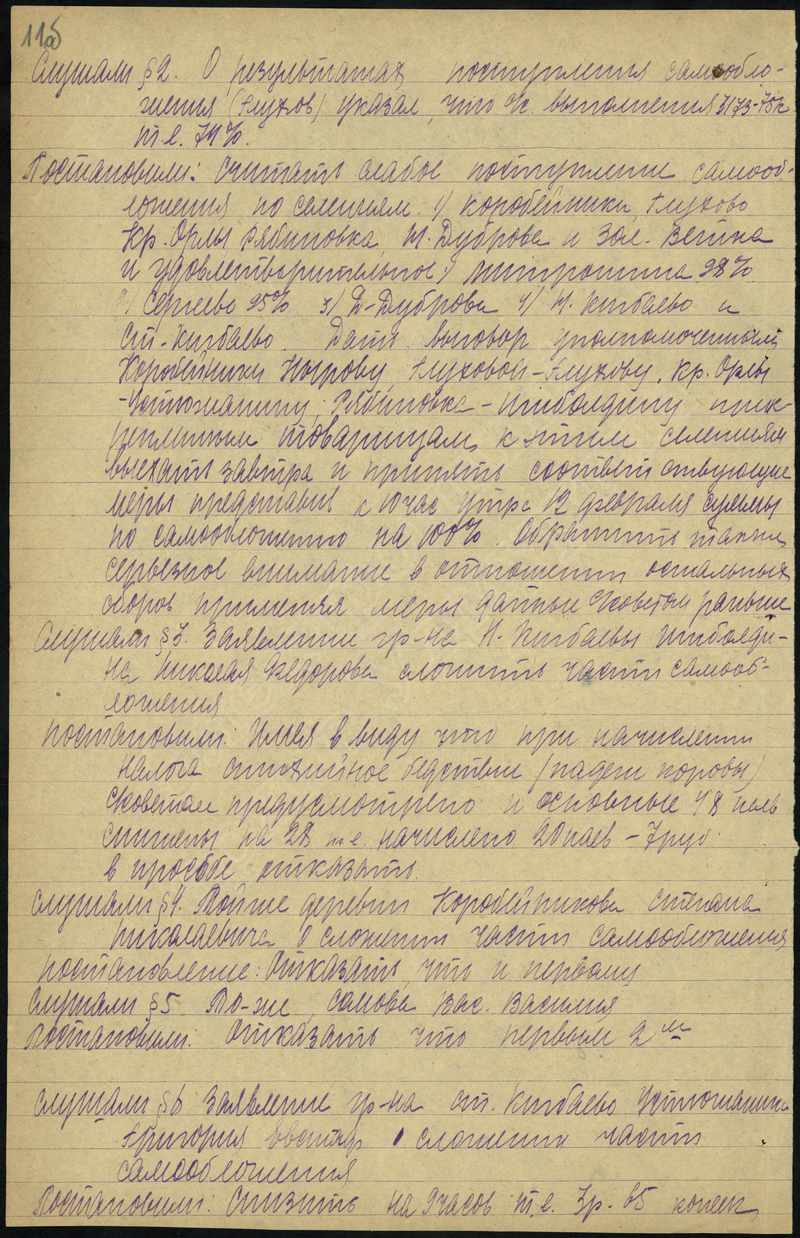 11об
Слушали § 2. О результатах поступления самообло-
жения (Глухов) указал, что % выполнения 3173-75к
т.е. 74%.
Постановили: Считать слабое поступление самооб-
ложения по селениям 1) Коробейники, Глухово
Кр. Орлы Рябиновка, Н. Дуброва и Зол. Ветка
и удовлетворительное: 1) Митрошина 98%
2) Сергеево 95% 3) Д-Дуброва 4) Н. Кигбаево и
Ст-Кигбаево. Дать выговор уполномоченным
Коробейники Глуховой-Глухову, Кр. Орлы
-Устюжанину, Рябиновка - Шиболдину прик-
репленным товарищам к этим селениям
выехать завтра и принять соответствующие
меры представив к 10 час утра 12 февраля суммы
по самообложению на 100%. Обратить также
серьезное внимание в отношении остальных
сборов применяя меры данные с/советом раньше
Слушали § 3. Заявление гр-на Н. Кигбаевы Шиболди-
на Николая Федорова сложить часть самооб-
ложения
Постановили: Имея в виду что при начислении
налога стихийное бедствие (падеж коровы)
с/советом предусмотрено и основные 48
снижены на 28 т.е. начислено 20 паев - 7 руб.
в просьбе отказать.
Слушали § 4. Той же деревни Коробейникова Степана
Николаевича о сложении части самообложения
Постановление: Отказать, что и первому
Слушали § 5. То-же, самова Вас. Василия
Постановили: Отказать что первым 2м
Слушали § 6 Заявление гр-на ст. Кигбаево Устюжанин
Григория о сложении части
самообложения
Постановили: Снизить на т.е. 3р. 65 копеек